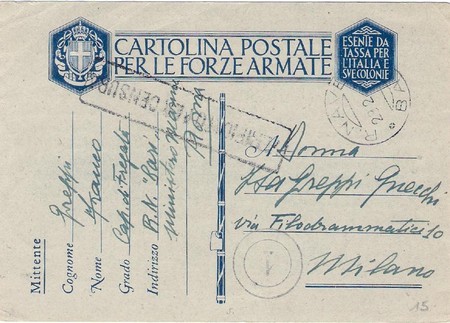 CARTOLINA POSTALE
PER LE FORZE ARMATE
ESENTE DA
TASSA PER
L'ITALIA E
SVE COLONIE
R. NAVE
CENSURA
Mittente
Cognome Greppi
Nome Franco
Grado Cap. di Fregata
Indirizzo R.N.
Ministero Marina
Roma
A Donna
Ida Greppi Gnecchi
via Filodrammatici 10
Milano
1
15